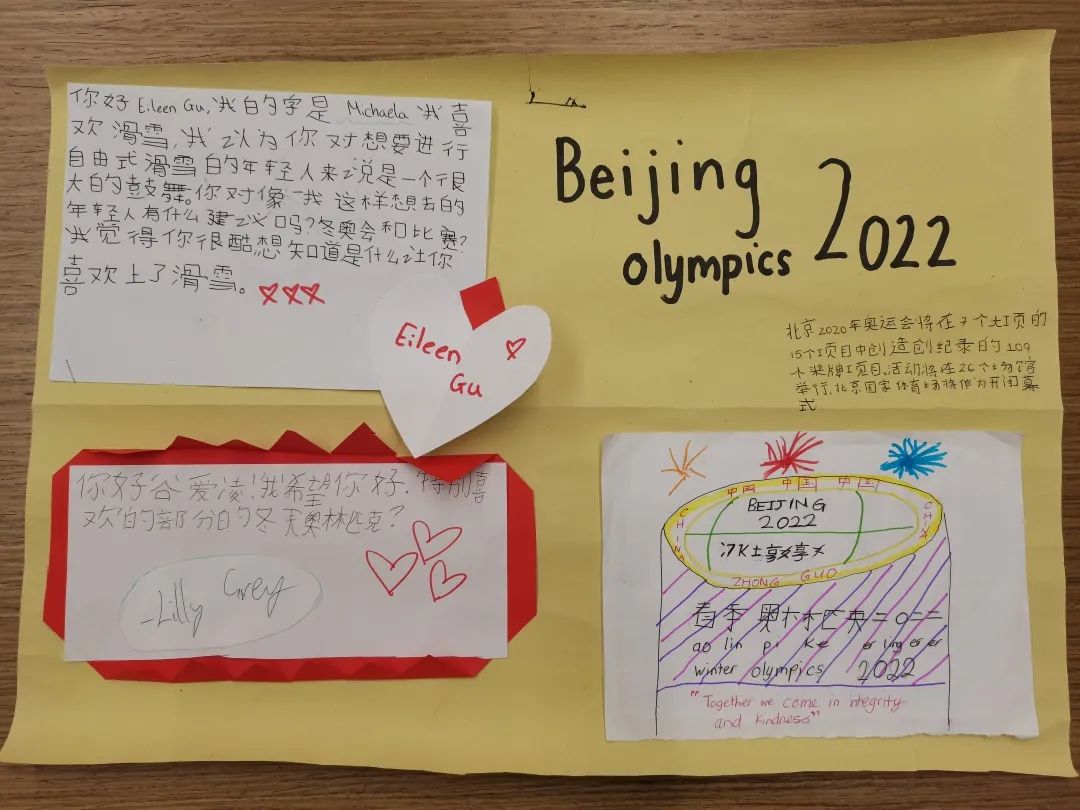 你好 Eileen Gu, 我的字是 Michaela 我喜
欢滑雪,我以为你对想要进行
自由式滑雪的年轻人来说是一个很
大的鼓舞。你对像我这样想去的
年轻人有什么建议吗?冬奥会和比赛?
我觉得你很酷,想知道是什么让你
喜欢上了滑雪。
Eileen
Gu
Beijing
olympics 2022
北京2020年奥运会将在7个大项的
15个项目中创造创纪录的109
个奖牌项目。活动将在26个场馆
举行,北京国家体育场将作为开闭幕
式
你好谷爱凌!我希望你好!特别喜
欢的部分的冬天奥林匹克?
-Lilly Grey
中国 中国 中国
CHINA
BEIJING
2022
CHINA
ZHONG GUO
春季奥林匹克二〇二二
ao lin pi ke er ling er er
winter olympics 2022
"Together we come in integrity
and kindness"